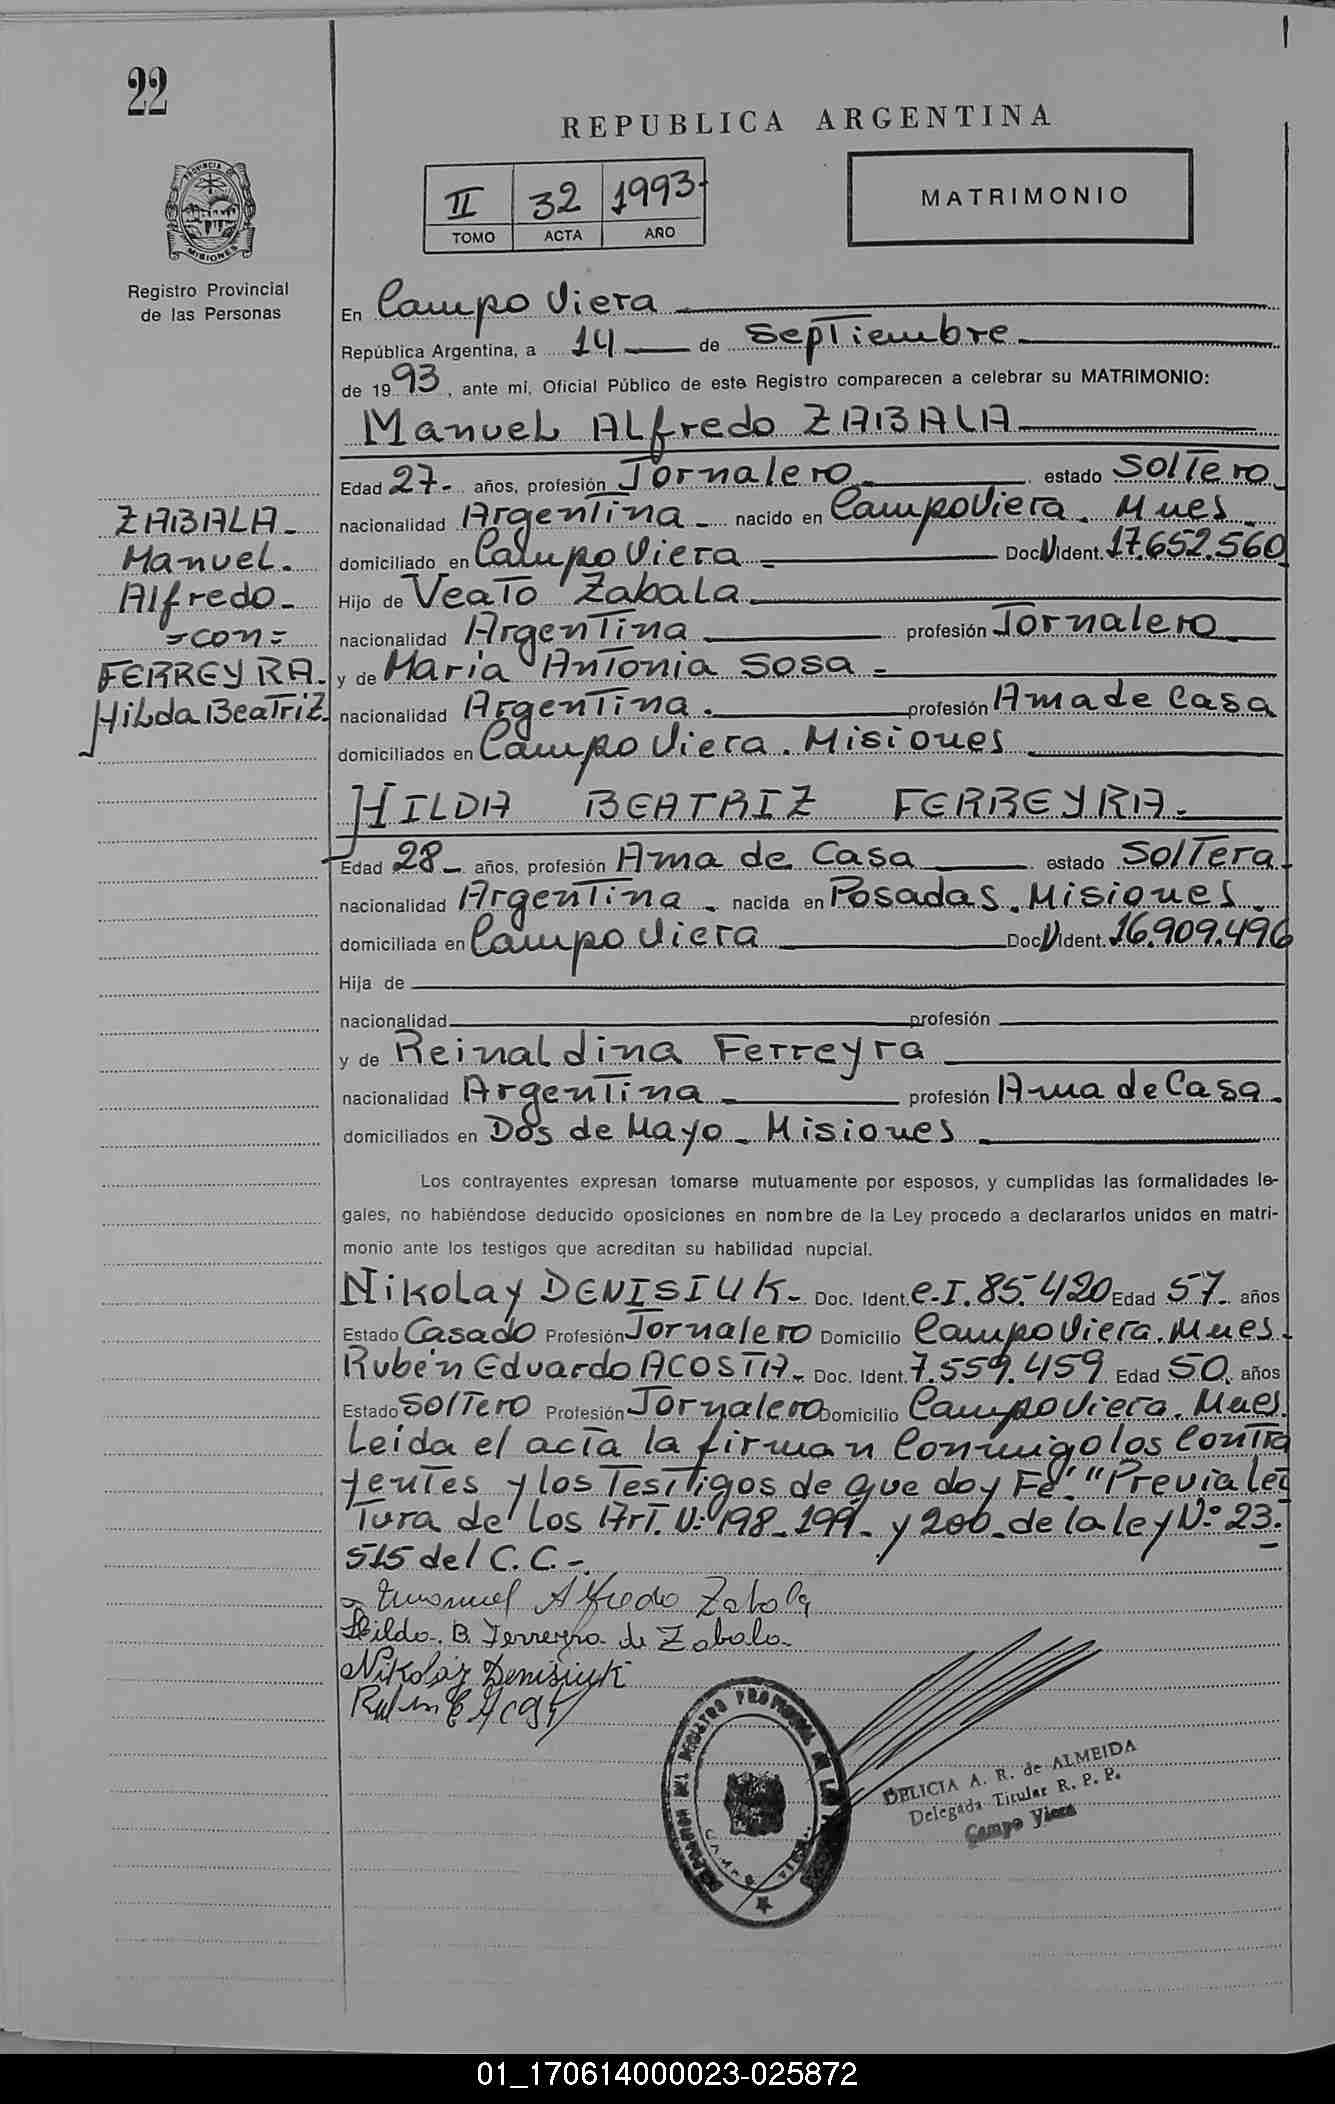 22
REPUBLICA ARGENTINA
II 32 1993
TOMO ACTA AÑO
MATRIMONIO
PROVINCIA DE MISIONES
Registro Provincial
de las Personas
En Campo Viera
República Argentina, a 14 de Septiembre
de 1993, ante mí, Oficial Público de este Registro comparecen a celebrar su MATRIMONIO:
Manuel Alfredo ZABALA
Edad 27- años, profesión Jornalero estado Soltero
nacionalidad Argentina - nacido en Campo Viera. Mnes.
domiciliado en Campo Viera - Doc. N Ident. 17.652.560
Hijo de Veato Zabala
nacionalidad Argentina profesión Jornalero
y de Maria Antonia Sosa -
nacionalidad Argentina. profesión Ama de Casa
domiciliados en Campo Viera. Misiones
ZABALA-
Manuel.
Alfredo-
=con=
FERREYRA-
Hilda Beatriz.
HILDA BEATRIZ FERREYRA-
Edad 28- años, profesión Ama de Casa estado Soltera
nacionalidad Argentina - nacida en Posadas. Misiones.
domiciliada en Campo Viera Doc. N Ident. 16.909.496
Hija de
nacionalidad profesión
y de Reinaldina Ferreyra
nacionalidad Argentina profesión Ama de Casa.
domiciliados en Dos de Mayo - Misiones
Los contrayentes expresan tomarse mutuamente por esposos, y cumplidas las formalidades le-
gales, no habiéndose deducido oposiciones en nombre de la Ley procedo a declararlos unidos en matri-
monio ante los testigos que acreditan su habilidad nupcial.
Nikolay DENISIUK- Doc. Ident. C.I. 85.420 Edad 57- años
Estado Casado Profesión Jornalero Domicilio Campo Viera. Mnes.
Rubén Eduardo ACOSTA- Doc. Ident. 7.559.459 Edad 50. años
Estado Soltero Profesión Jornalero Domicilio Campo Viera. Mnes.
Leida el acta la firman Conmigo los Contra
yentes y los Testigos de que doy Fé. "Previa lec
tura de los Art. Nº 198-199- y 200- de la ley Nº 23.
515 del C.C.-
Manuel Alfredo Zabala
Hilda. B. Ferreyra de Zabala
Nikolay Denisiuk
Ruben E Acosta
DELICIA A. R. de ALMEIDA
Delegada Titular R. P. P.
Campo Viera
01_170614000023-025872